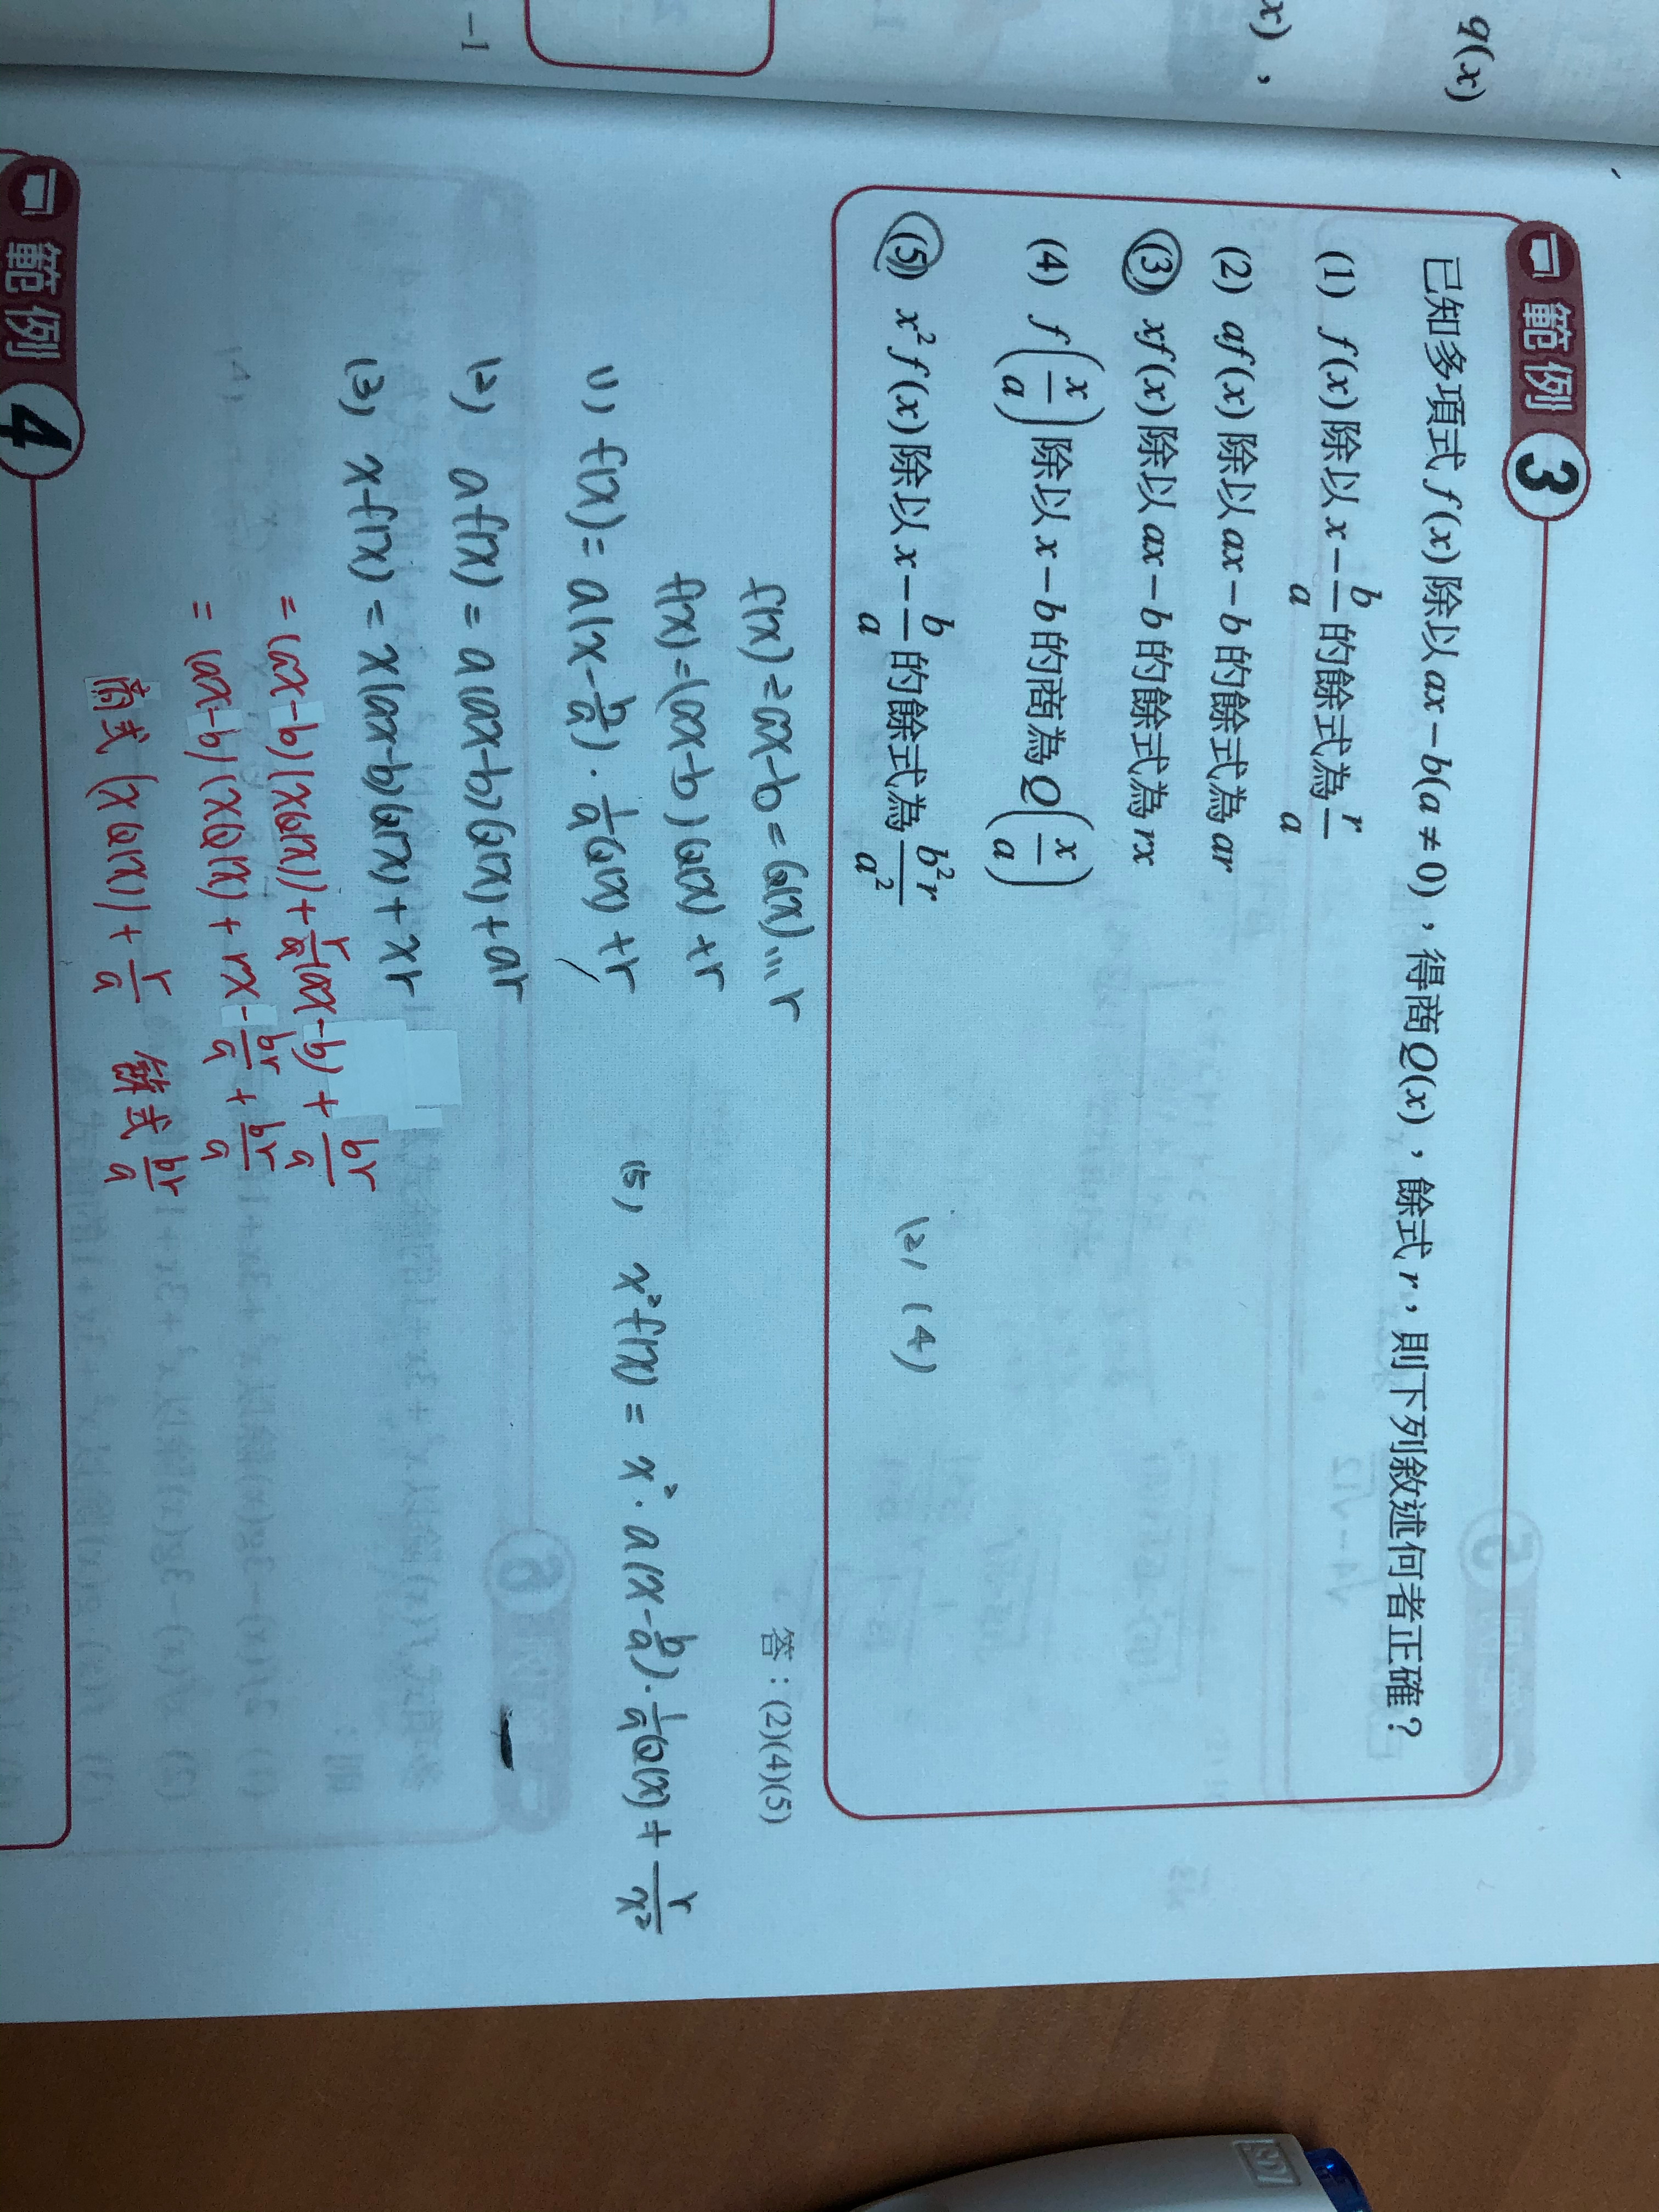 q(x)
x),
-1
範例 3
已知多項式 f(x) 除以 ax-b(a≠0),得商 Q(x),餘式 r,則下列敘述何者正確?
(1) f(x) 除以 x-b/a 的餘式為 r/a
(2) af(x) 除以 ax-b 的餘式為 ar
(3) xf(x) 除以 ax-b 的餘式為 rx
(4) f(x/a) 除以 x-b 的商為 Q(x/a)
(5) x²f(x) 除以 x-b/a 的餘式為 b²r/a²
(2) (4)
答:(2)(4)(5)
f(x)÷ax-b=Q(x)...r
f(x)=(ax-b)Q(x)+r
(1) f(x)=a(x-b/a)·1/a Q(x)+r
(2) af(x)=a(ax-b)Q(x)+ar
(3) xf(x)=x(ax-b)Q(x)+xr
=(ax-b)(xQ(x))+r/a(ax-b)+br/a
=(ax-b)(xQ(x)+rx-br/a+br/a
商式(xQ(x)+r/a 餘式 br/a
(5) x²f(x)=x²·a(x-b/a)·1/a Q(x)+r/x²
範例 4